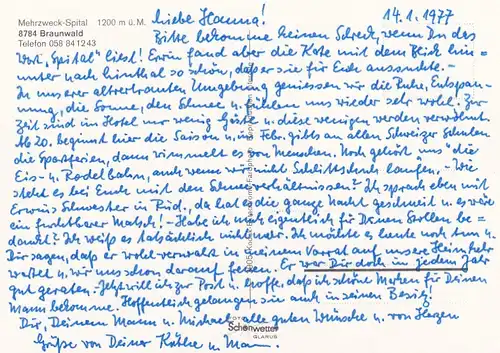 Mehrzweck-Spital 1200 m ü.M.
8784 Braunwald
Telefon 058 841243
14.1.1977
Liebe Hanna!
Bitte bekomme keinen Schreck, wenn Du das
Wort „Spital" liest! Erwin fand aber die Karte mit dem Blick hin=
unter nach Linthal so schön, daß er sie für Euch aussuchte.-
In unserer altvertrauten Umgebung geniessen wir die Ruhe, Entspan=
nung, die Sonne, den Schnee u. fühlen uns wieder sehr wohl. Zur
Zeit sind im Hotel nur wenig Gäste u. diese wenigen werden verwöhnt.
Ab 20. beginnt hier die Saison u. im Febr. gibts an allen Schweizer Schulen
die Sportferien, dann wimmelt es von Menschen. Noch gehört uns die
Eis- u. Rodelbahn, auch wenn wir nicht Schlittschuh laufen.- Wie
steht es bei Euch mit den Schneeverhältnissen? Ich sprach eben mit
Erwins Schwester in Ried, da hat's die ganze Nacht geschneit u. es wäre
ein furchtbarer Matsch!- Habe ich mich eigentlich für Deinen Stollen be=
dankt? Ich weiß es tatsächlich nicht mehr. Ich möchte es heute noch tun u.
Dir sagen, daß er wohlverwahrt in meinem Vorrat auf unsere Heimkehr
wartet u. wir uns schon darauf freuen. Er war Dir doch in jedem Jahr
gut geraten.- Jetzt will ich zur Post u. hoffe, daß ich schöne Marken für Deinen
Mann bekomme. Hoffentlich gelangen sie auch in seinen Besitz!
Dir, Deinem Mann u. Michael alle guten Wünsche u. von Herzen
Grüße von Deiner Käthe u. Mann.
FOTO
Schönwetter
GLARUS